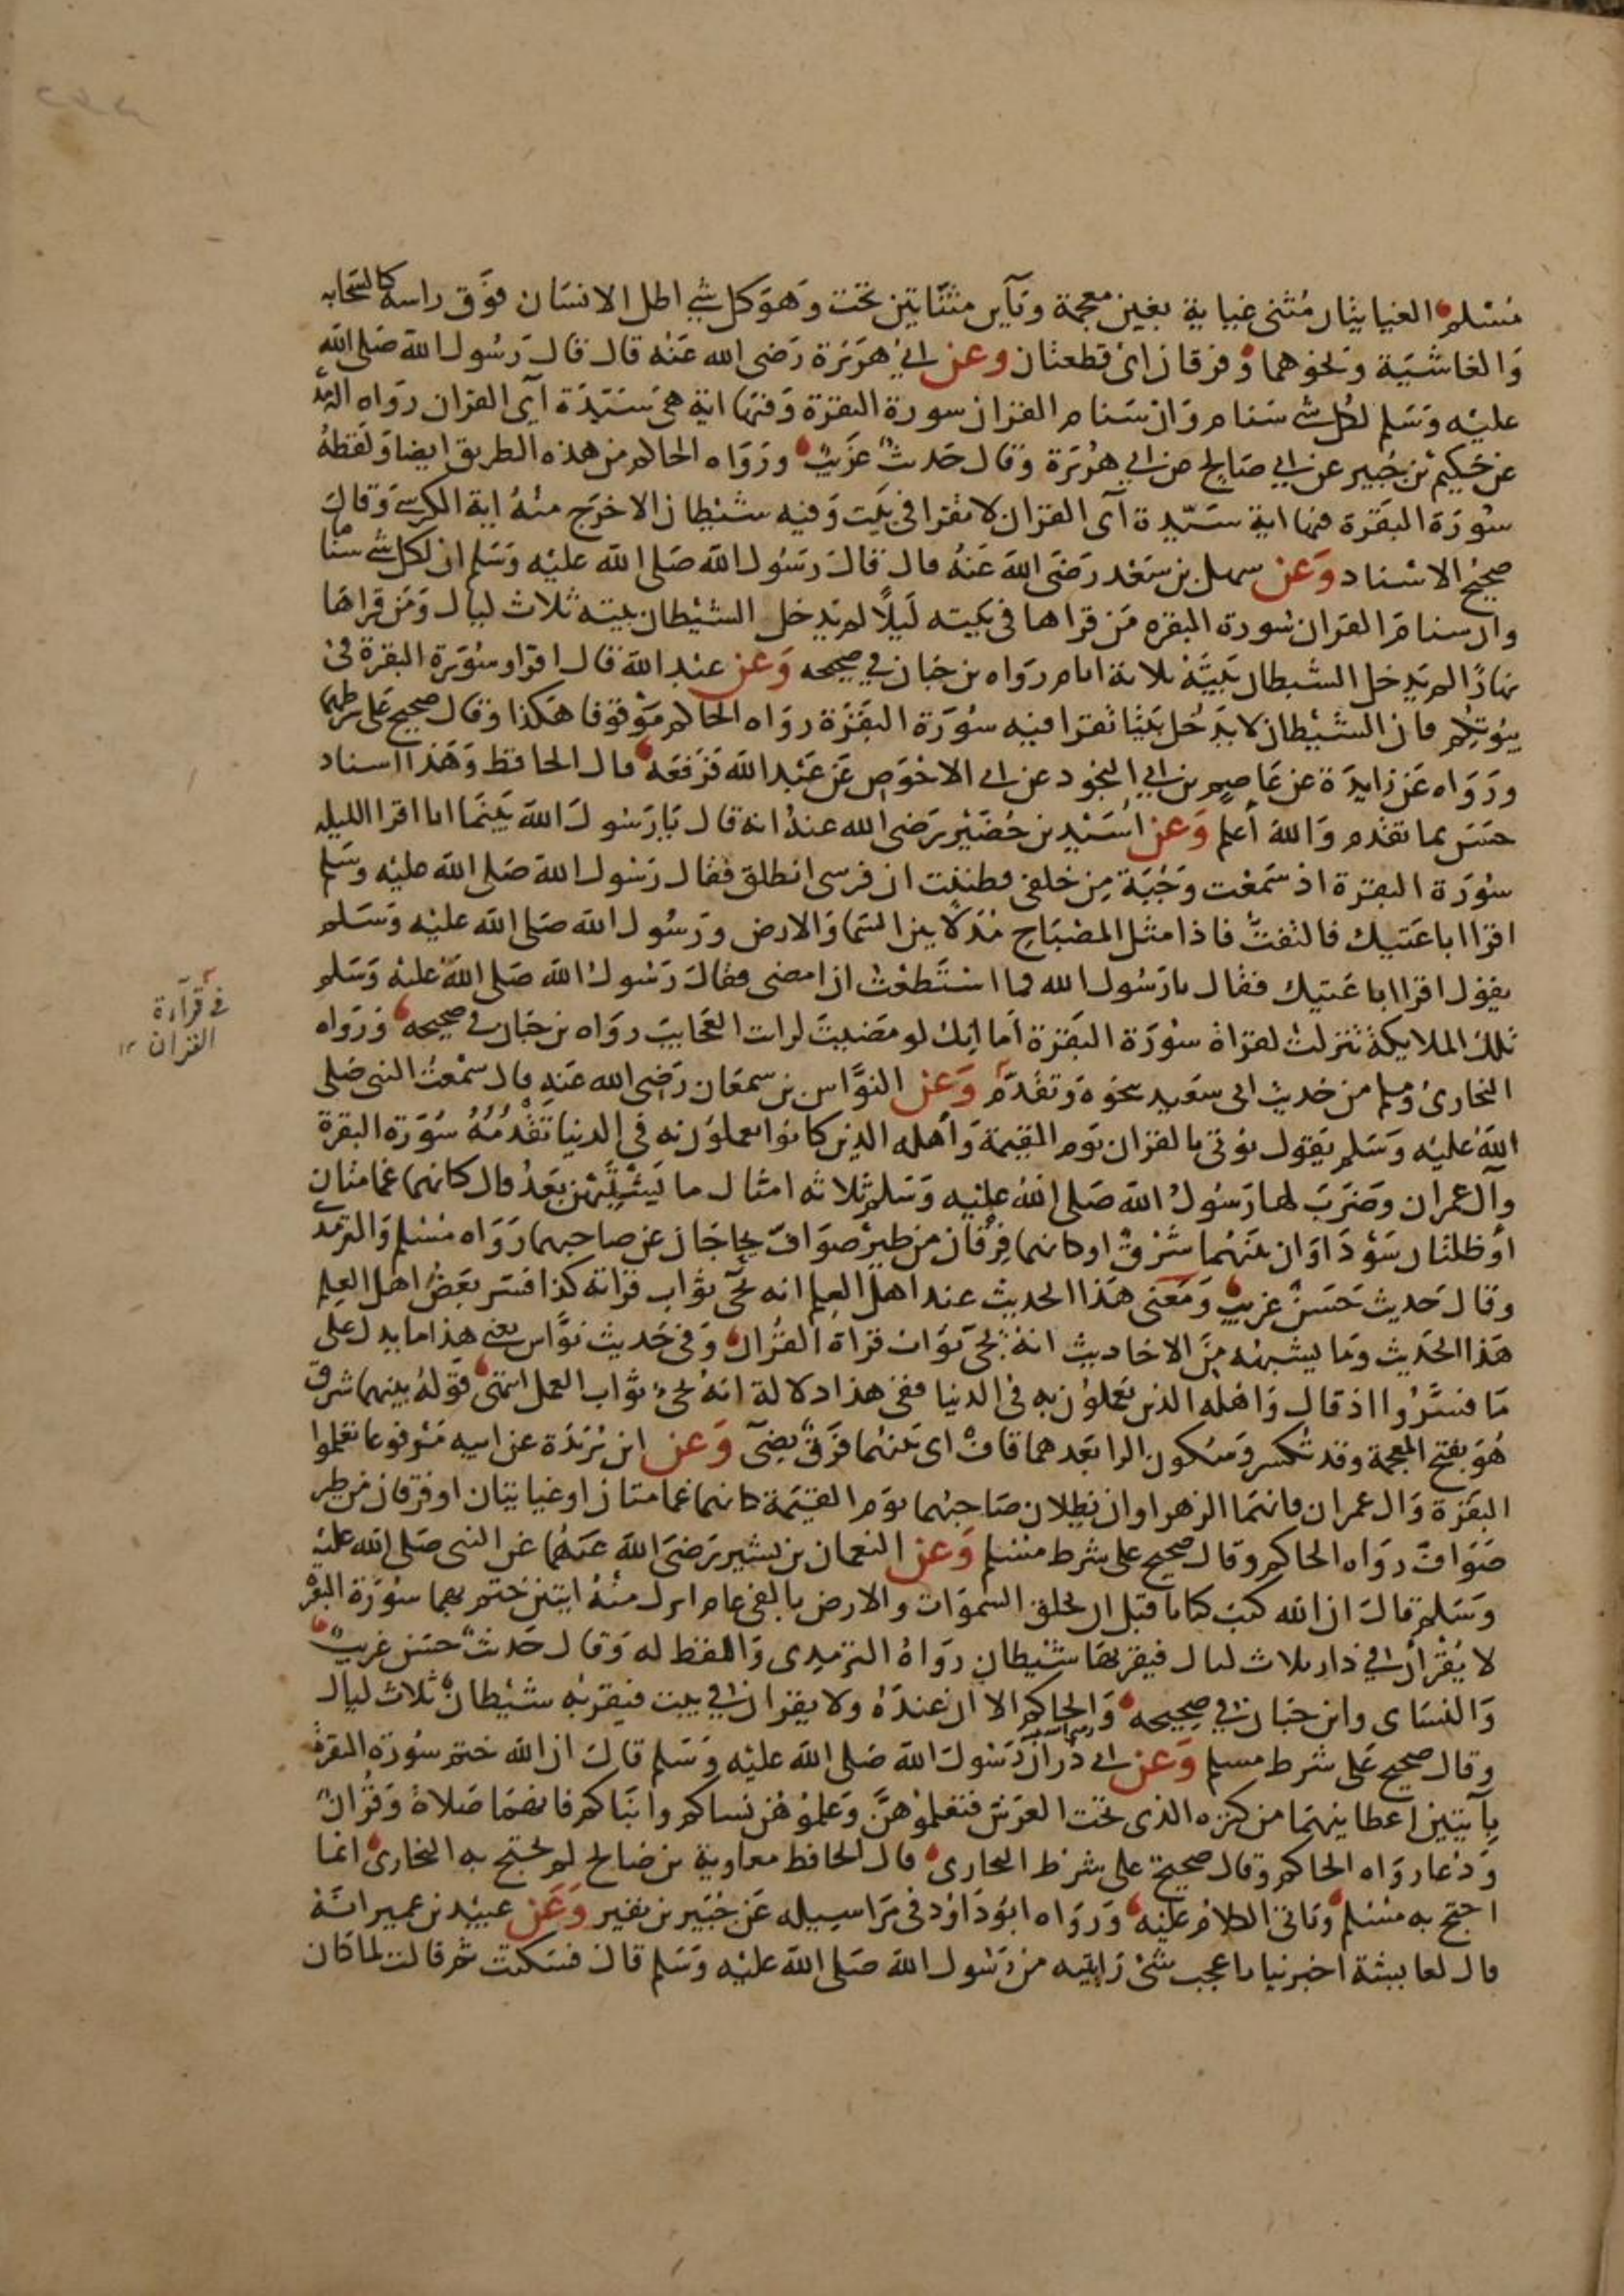 مسلم الغيايتان مثنى غياية بغين معجمة ويآين مثناتين تحت وهو كل شي اظل الانسان فوق راسه كالسحابه
والغاشية ونحوهما وفرقان اى قطعتان وعن ابي هريرة رضى الله عنه قال قال رسول الله صلى الله
عليه وسلم لكل شي سنام وان سنام القران سورة البقرة وفيها اية هى سيدة آي القران رواه الترمذ
عن حكيم بن جبير عن ابي صالح عن ابي هريرة وقال حديث غريب ورواه الحاكم من هذه الطريق ايضا ولفظه
سورة البقرة فيها اية سيدة آى القران لا تقرا فى بيت وفيه شيطان الا خرج منه اية الكرسي وقال
صحيح الاسناد وعن سهل بن سعد رضى الله عنه قال قال رسول الله صلى الله عليه وسلم ان لكل شي سناما
وان سنام القران سورة البقره من قراها فى بيته ليلا لم يدخل الشيطان بيته ثلاث ليال ومن قراها
نهارا لم يدخل الشيطان بيته ثلاثة ايام رواه بن حبان في صحيحه وعن عبد الله قال اقراو سورة البقرة فى
بيوتكم فان الشيطان لا يدخل بيتا تقرا فيه سورة البقرة رواه الحاكم موقوفا هكذا وقال صحيح على شرطهما
ورواه عن زايدة عن عاصم بن ابي النجود عن ابي الاحوص عن عبد الله فرفعه قال الحافظ وهذا اسناد
حسن بما تقدم والله أعلم وعن اسيد بن حضير رضى الله عنه انه قال يا رسول الله بينما انا اقرا الليله
سورة البقرة اذ سمعت وجبة من خلفى فظننت ان فرسى انطلق فقال رسول الله صلى الله عليه وسلم
اقرا ابا عتيك فالتفت فاذا مثل المصباح مدلا بين السما والارض ورسول الله صلى الله عليه وسلم
يقول اقرا ابا عتيك فقال يا رسول الله فما استطعت ان امضى فقال رسول الله صلى الله عليه وسلم
تلك الملايكة تنزلت لقراة سورة البقرة أما انك لو مضيت لرات العجايب رواه بن حبان في صحيحه ورواه
البخارى ومسلم من حديث ابى سعيد بنحوه وتقدم وعن النواس بن سمعان رضى الله عنه قال سمعت النبى صلى
الله عليه وسلم يقول يؤتى بالقران يوم القيمة وأهله الذين كانوا يعملون به فى الدنيا تقدمه سورة البقرة
وآل عمران وضرب لها رسول الله صلى الله عليه وسلم ثلاثه امثال ما نسيتهن بعد قال كانهما غمامتان
أو ظلتان سودا اوان بينهما شرق او كانهما فرقان من طير صواف يحاجان عن صاحبهما رواه مسلم والترمذ
وقال حديث حسن غريب ومعنى هذا الحديث عند اهل العلم انه يجيى ثواب قراته كذا فسر بعض اهل العلم
هذا الحديث وما يشبهه من الاحاديث انه يجيى ثواب قراة القران وفى حديث نواس يعنى هذا ما يدل على
ما فسروا اذ قال واهله الذين يعملون به فى الدنيا ففى هذا دلالة انه يجىء ثواب العمل انتهى قوله بينهما شرق
هو بفتح المعجمة وقد تكسر وسكون الرا بعدهما قاف اى بينهما فرق يضى وعن ابن بريدة عن ابيه مرفوعا تعلموا
البقرة وال عمران فانهما الزهراوان يظلان صاحبهما يوم القيمة كانهما غمامتان او غيايتان او فرقان من طير
صواف رواه الحاكم وقال صحيح على شرط مسلم وعن النعمان بن بشير رضى الله عنهما عن النبى صلى الله عليه
وسلم قال ان الله كتب كتابا قبل ان يخلق السموات والارض بالفى عام انزل منه ايتين ختم بهما سورة البقر
لا يقران في دار ثلاث ليال فيقربها شيطان رواه الترمدى واللفظ له وقال حديث حسن غريب
والنساى وابن حبان في صحيحه والحاكم الا ان عنده ولا يقران في بيت فيقربه شيطان ثلاث ليال
وقال صحيح على شرط مسلم وعن ابي ذر أن رسول الله صلى الله عليه وسلم قال ان الله ختم سورة البقرة
بآيتين اعطانيهما من كنزه الذى تحت العرش فتعلموهن وعلموهن نساكم وابناكم فانهما صلاة وقران
ودعا رواه الحاكم وقال صحيح على شرط البخارى قال الحافظ معاوية بن صالح لم يحتج به البخارى انما
احتج به مسلم وياتى الكلام عليه ورواه ابو داود فى مراسيله عن جبير بن نفير وعن عبيد بن عمير انه
قال لعايشة اخبرنيا باعجب شى رايتيه من رسول الله صلى الله عليه وسلم قال فسكتت ثم قالت لما كان
في قرآءة
القران ١٢